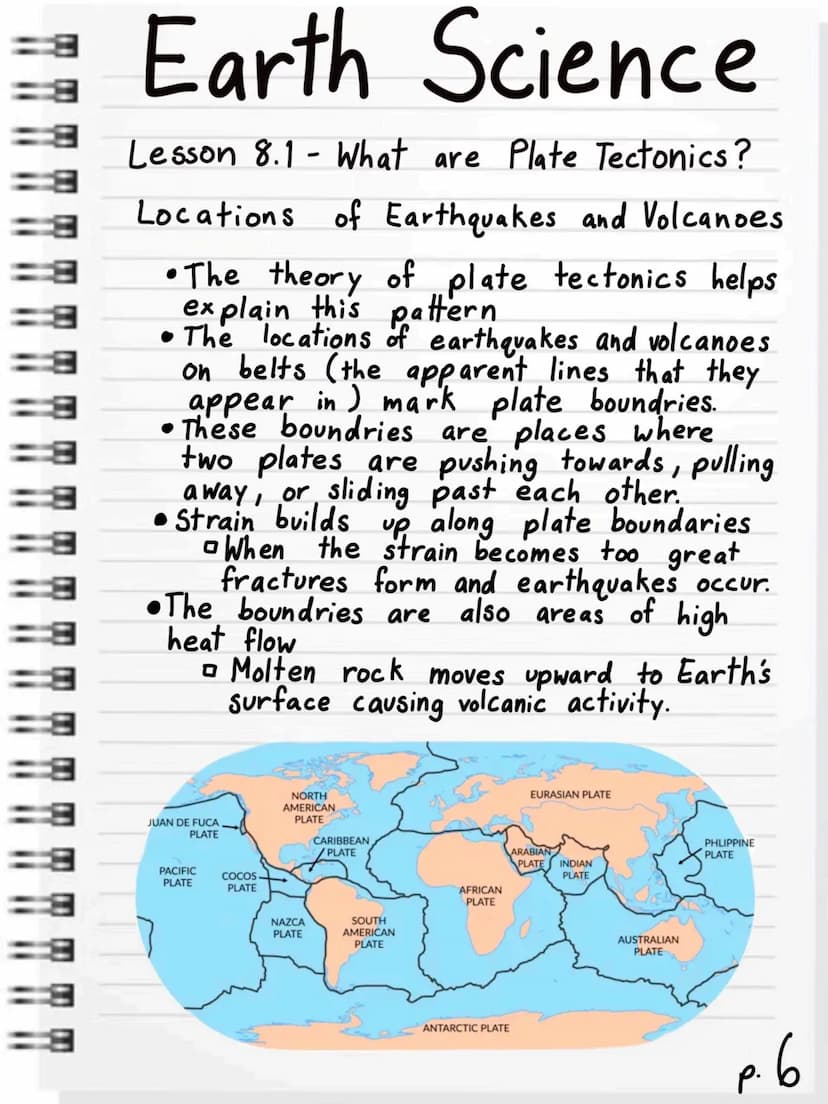 Earth Science
Lesson 8.1 - What are Plate Tectonics?
Locations of Earthquakes and Volcanoes
•The theory of plate tectonics helps
explain this pattern
• The locations of earthquakes and volcanoes
on belts (the apparent lines that they
appear in) mark plate boundries.
• These boundries are places where
two plates are pushing towards, pulling
away, or sliding past each other.
• Strain builds up along plate boundaries
▫ When the strain becomes too great
fractures form and earthquakes occur.
• The boundries are also areas of high
heat flow
▫ Molten rock moves upward to Earth's
surface causing volcanic activity.
NORTH
AMERICAN
PLATE
EURASIAN PLATE
JUAN DE FUCA
PLATE
CARIBBEAN
PLATE
ARABIAN
PLATE
INDIAN
PLATE
PHLIPPINE
PLATE
PACIFIC
PLATE
COCOS
PLATE
AFRICAN
PLATE
NAZCA
PLATE
SOUTH
AMERICAN
PLATE
AUSTRALIAN
PLATE
ANTARCTIC PLATE
p. 6